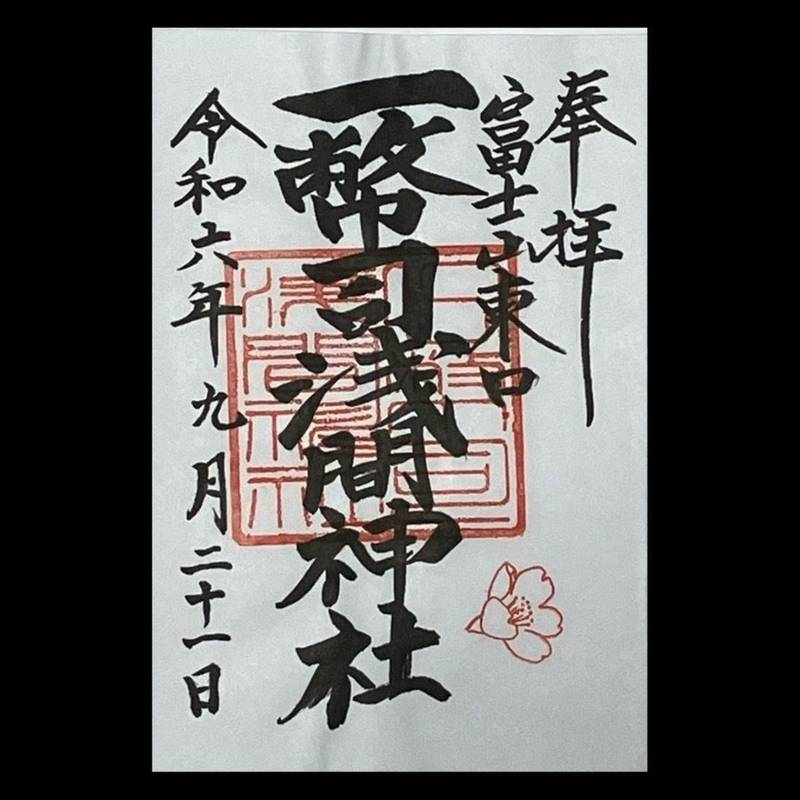 奉拝
富士山東口
一幣司浅間神社
令和六年九月二十一日